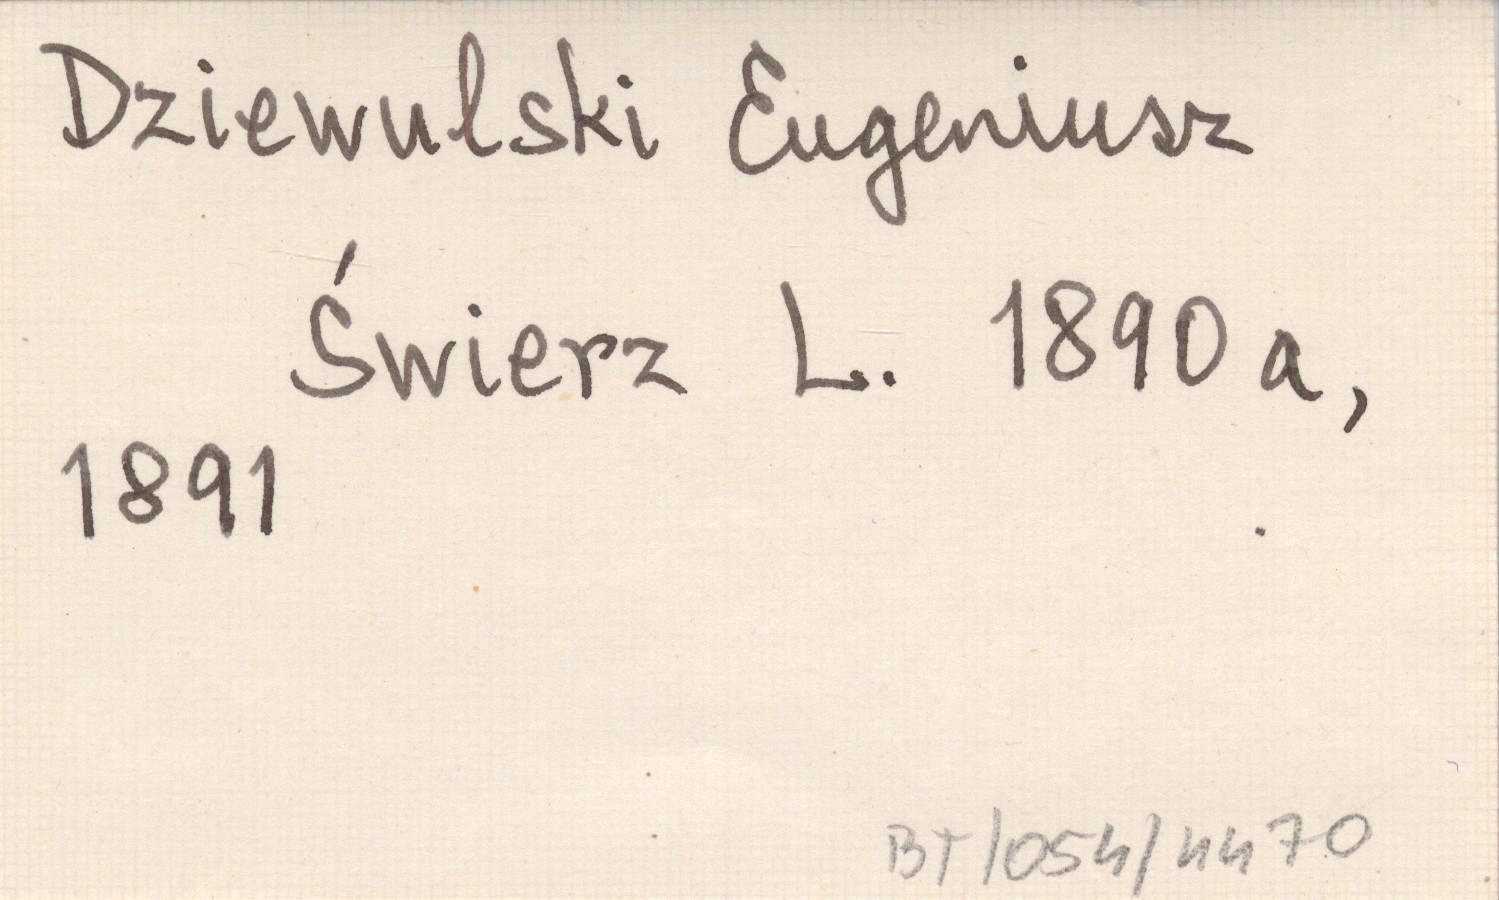 Dziewulski Eugeniusz
Świerz L. 1890 a,
1891
BT/054/4470